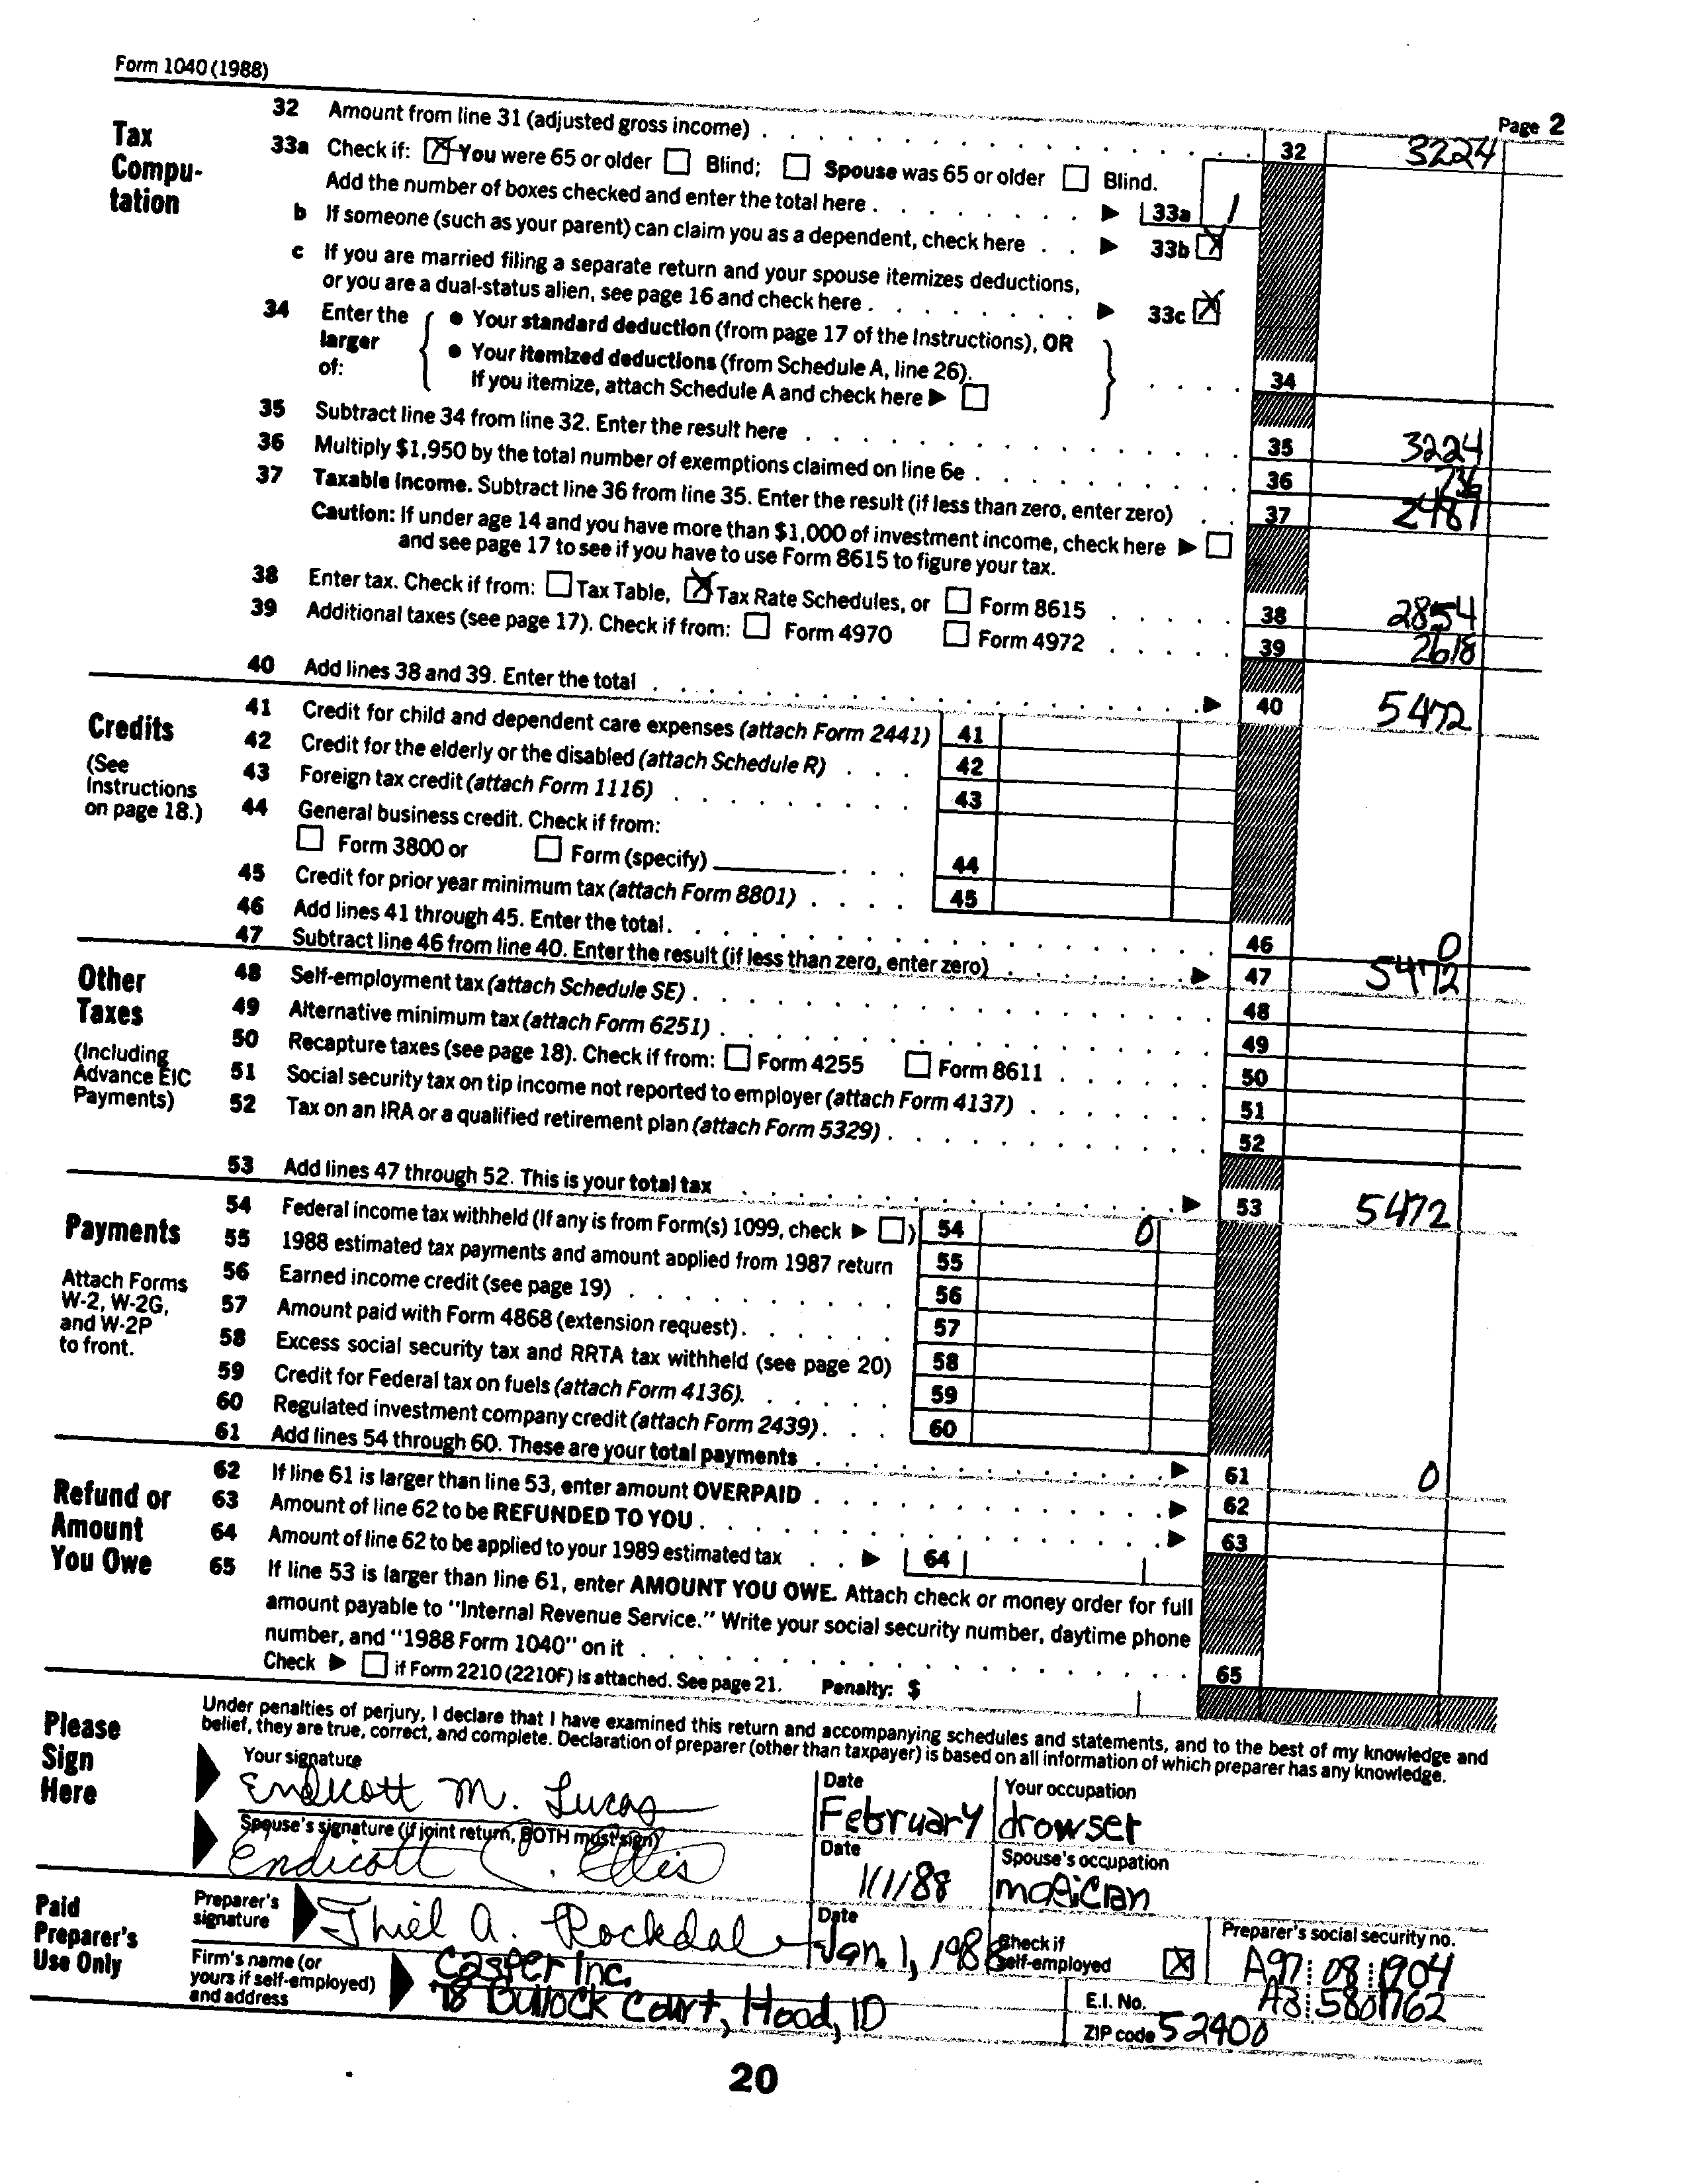 Form 1040 (1988)
Page 2
Tax Compu- tation
32 Amount from line 31 (adjusted gross income) 32 3224
33a Check if: X You were 65 or older Blind; Spouse was 65 or older Blind.
Add the number of boxes checked and enter the total here 33a 1
b If someone (such as your parent) can claim you as a dependent, check here 33b X
c If you are married filing a separate return and your spouse itemizes deductions,
or you are a dual-status alien, see page 16 and check here 33c X
34 Enter the larger of:
• Your standard deduction (from page 17 of the Instructions), OR
• Your itemized deductions (from Schedule A, line 26).
If you itemize, attach Schedule A and check here 34
35 Subtract line 34 from line 32. Enter the result here 35 3224
36 Multiply $1,950 by the total number of exemptions claimed on line 6e 36
37 Taxable income. Subtract line 36 from line 35. Enter the result (if less than zero, enter zero) 37 2487
Caution: If under age 14 and you have more than $1,000 of investment income, check here
and see page 17 to see if you have to use Form 8615 to figure your tax.
38 Enter tax. Check if from: Tax Table, X Tax Rate Schedules, or Form 8615 38 2854
39 Additional taxes (see page 17). Check if from: Form 4970 Form 4972 39 2618
40 Add lines 38 and 39. Enter the total 40 5472
Credits
(See Instructions on page 18.)
41 Credit for child and dependent care expenses (attach Form 2441) 41
42 Credit for the elderly or the disabled (attach Schedule R) 42
43 Foreign tax credit (attach Form 1116) 43
44 General business credit. Check if from:
Form 3800 or Form (specify) 44
45 Credit for prior year minimum tax (attach Form 8801) 45
46 Add lines 41 through 45. Enter the total 46 0
47 Subtract line 46 from line 40. Enter the result (if less than zero, enter zero) 47 5472
Other Taxes
(Including Advance EIC Payments)
48 Self-employment tax (attach Schedule SE) 48
49 Alternative minimum tax (attach Form 6251) 49
50 Recapture taxes (see page 18). Check if from: Form 4255 Form 8611 50
51 Social security tax on tip income not reported to employer (attach Form 4137) 51
52 Tax on an IRA or a qualified retirement plan (attach Form 5329) 52
53 Add lines 47 through 52. This is your total tax 53 5472
Payments
Attach Forms W-2, W-2G, and W-2P to front.
54 Federal income tax withheld (If any is from Form(s) 1099, check ) 54 0
55 1988 estimated tax payments and amount applied from 1987 return 55
56 Earned income credit (see page 19) 56
57 Amount paid with Form 4868 (extension request) 57
58 Excess social security tax and RRTA tax withheld (see page 20) 58
59 Credit for Federal tax on fuels (attach Form 4136) 59
60 Regulated investment company credit (attach Form 2439) 60
61 Add lines 54 through 60. These are your total payments 61 0
Refund or Amount You Owe
62 If line 61 is larger than line 53, enter amount OVERPAID 62
63 Amount of line 62 to be REFUNDED TO YOU 63
64 Amount of line 62 to be applied to your 1989 estimated tax 64
65 If line 53 is larger than line 61, enter AMOUNT YOU OWE. Attach check or money order for full
amount payable to "Internal Revenue Service." Write your social security number, daytime phone
number, and "1988 Form 1040" on it 65
Check if Form 2210 (2210F) is attached. See page 21. Penalty: $
Please Sign Here
Under penalties of perjury, I declare that I have examined this return and accompanying schedules and statements, and to the best of my knowledge and
belief, they are true, correct, and complete. Declaration of preparer (other than taxpayer) is based on all information of which preparer has any knowledge.
Your signature Date Your occupation
Endicott M. Lucas February drowser
Spouse's signature (if joint return, BOTH must sign) Date Spouse's occupation
Endicott C. Ellis 1/1/88 magician
Paid Preparer's Use Only
Preparer's signature Thiel A. Rockdale Date Jan. 1, 1988 Check if self-employed X Preparer's social security no. A97 08 1904
Firm's name (or yours if self-employed) and address Casper Inc. E.I. No. A3 5801762
78 Bullock Court, Hood, ID ZIP code 52400
20